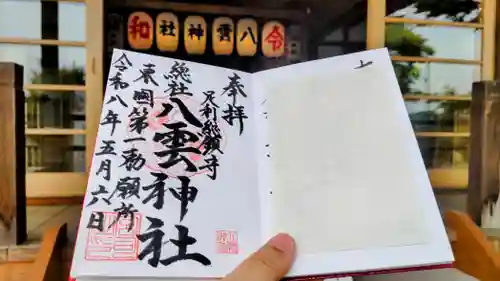 令八雲神社和
奉拝
足利総鎮守
総社
八雲神社
東国第一勅願所
令和八年五月六日